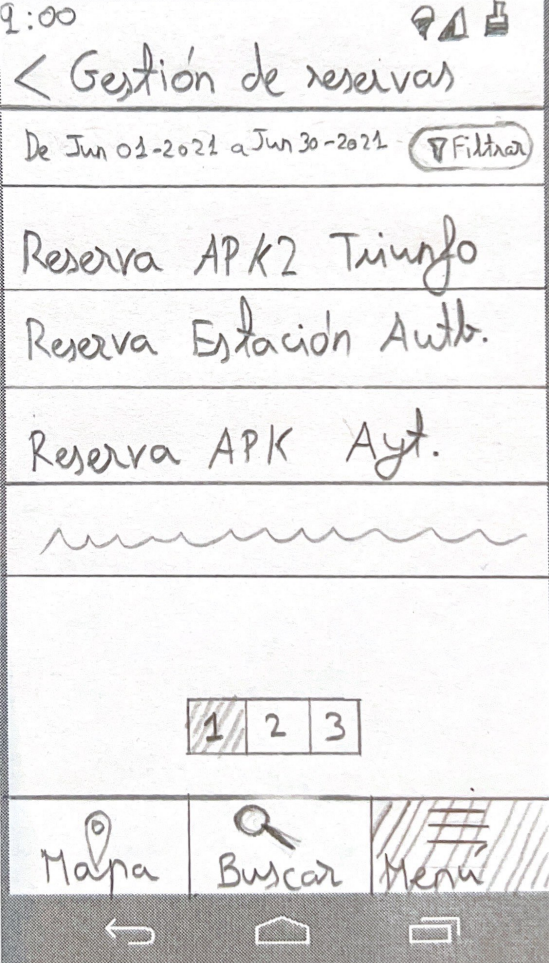 9:00
< Gestión de reservas
De Jun 01-2021 a Jun 30-2021 Filtrar
Reserva APK2 Triunfo
Reserva Estación Autb.
Reserva APK Ayt.
1 2 3
Mapa Buscar Menú